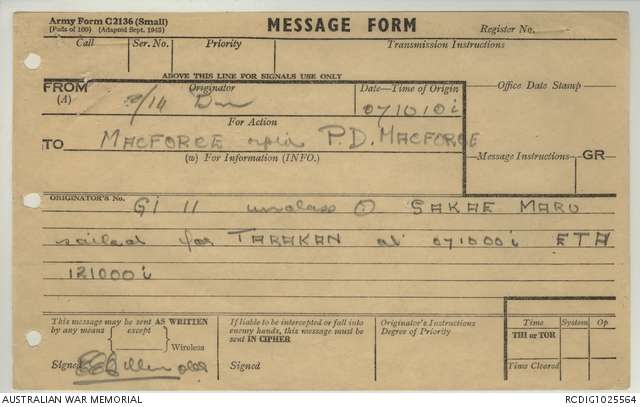 Army Form C2136 (Small)
(Pads of 100) (Adapted Sept. 1943)
MESSAGE FORM
Register No.
Call Ser. No. Priority Transmission Instructions
ABOVE THIS LINE FOR SIGNALS USE ONLY
FROM (A) Originator Date-Time of Origin Office Date Stamp
/14 071010i
For Action
TO MACFORCE P.D. MACFORCE
(w) For Information (INFO.) Message Instructions GR
ORIGINATOR'S No.
GI 11 unclass SAKAE MARU
sailed for TARAKAN at 071000i ETA
121000i
This message may be sent AS WRITTEN
by any means except
Wireless
Signed
If liable to be intercepted or fall into
enemy hands, this message must be
sent IN CIPHER
Signed
Originator's Instructions
Degree of Priority
Time System Op
THI or TOR
Time Cleared
AUSTRALIAN WAR MEMORIAL RCDIG1025564